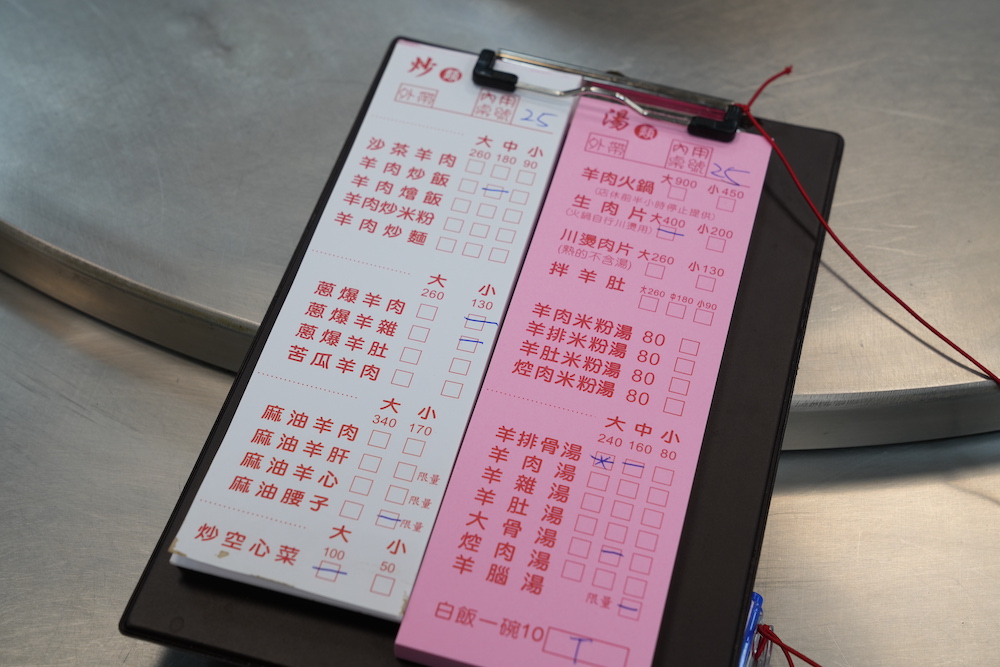 炒類
外帶 內用桌號 25
大 中 小
260 180 90
沙茶羊肉
羊肉炒飯
羊肉燴飯
羊肉炒米粉
羊肉炒麵
大 小
260 130
蔥爆羊肉
蔥爆羊雜
蔥爆羊肚
苦瓜羊肉
大 小
340 170
麻油羊肉
麻油羊肝
麻油羊心 限量
麻油腰子 限量
大 小
炒空心菜 100 50
湯類
外帶 內用桌號 25
羊肉火鍋 大900 小450
(店休前半小時停止提供)
生肉片 大400 小200
(火鍋自行川燙用)
川燙肉片 大260 小130
(熟的不含湯)
拌羊肚 大260 中180 小90
羊肉米粉湯 80
羊排米粉湯 80
羊肚米粉湯 80
焢肉米粉湯 80
大 中 小
240 160 80
羊排骨湯
羊肉湯
羊雜湯
羊肚湯
大骨湯
焢肉湯
羊腦湯 限量
白飯一碗10